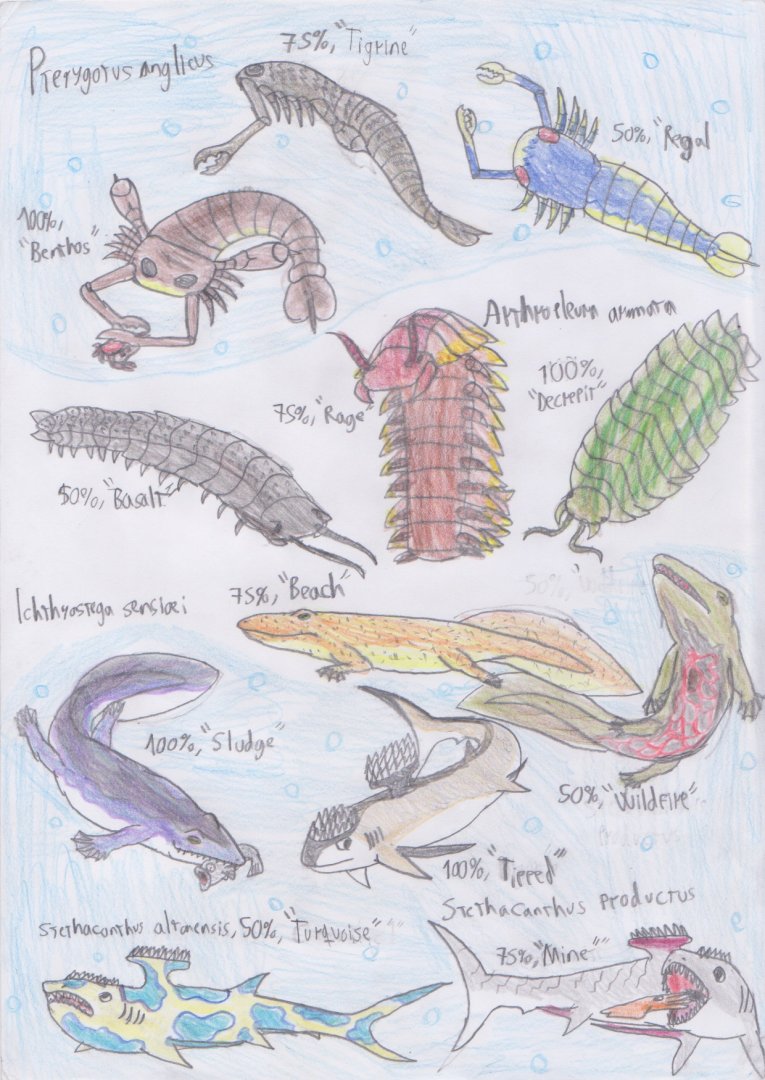 Pterygotus anglicus
75%, "Tigrine"
50%, "Regal
100%,
"Benthos"
Arthropleura armata
100%,
"Decrepit"
75%, "Rage"
50%, "Basalt"
Ichthyostega sensiœi
75%, "Beach"
100%, "Sludge"
50%, "Wildfire"
100%, "Tipped"
Stethacanthus productus
Stethacanthus altonensis, 50%, "Turquoise"
75%, "Mine"